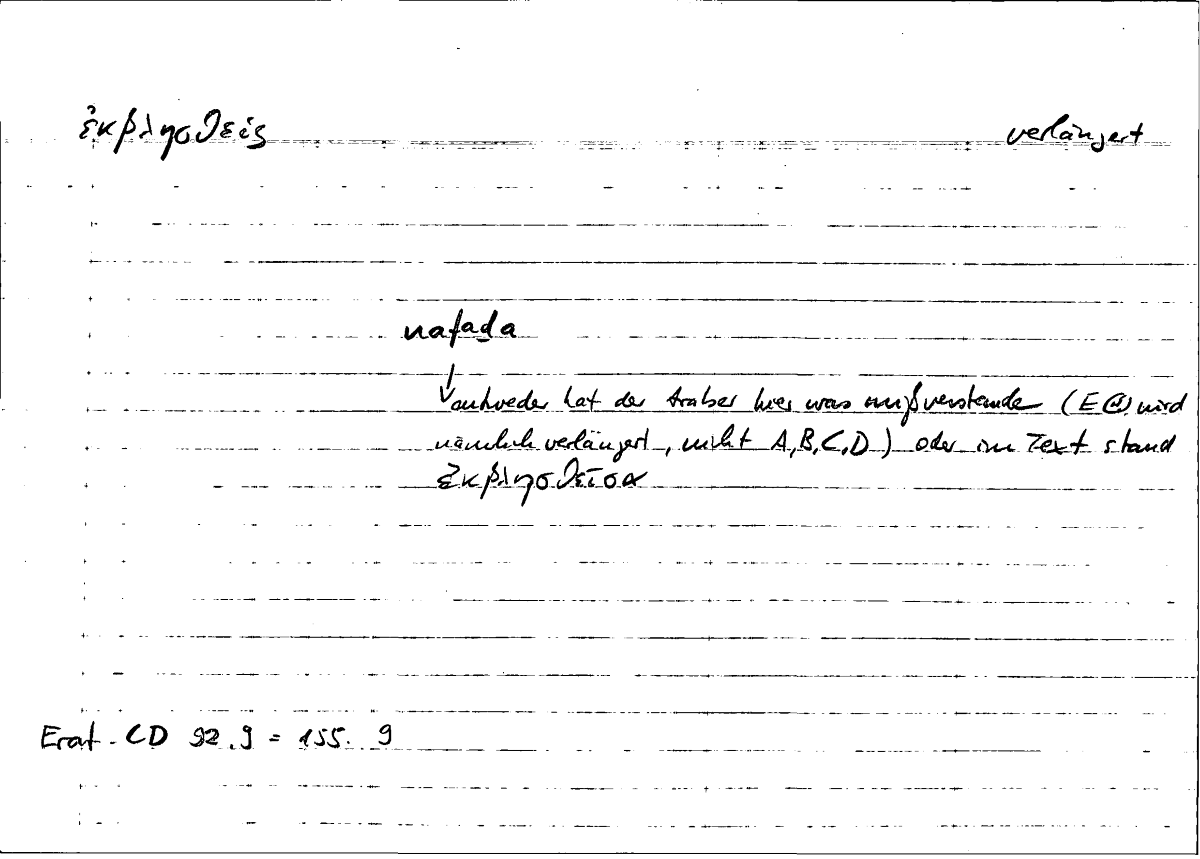 ἐκβλησθείς verlängert
nafaḏa
entweder hat der Araber hier was mißverstanden (E Θ wird
nämlich verlängert, nicht A, B, C, D) oder im Text stand
ἐκβλησθεῖσα
Erat. CD 92.9 = 155. 9